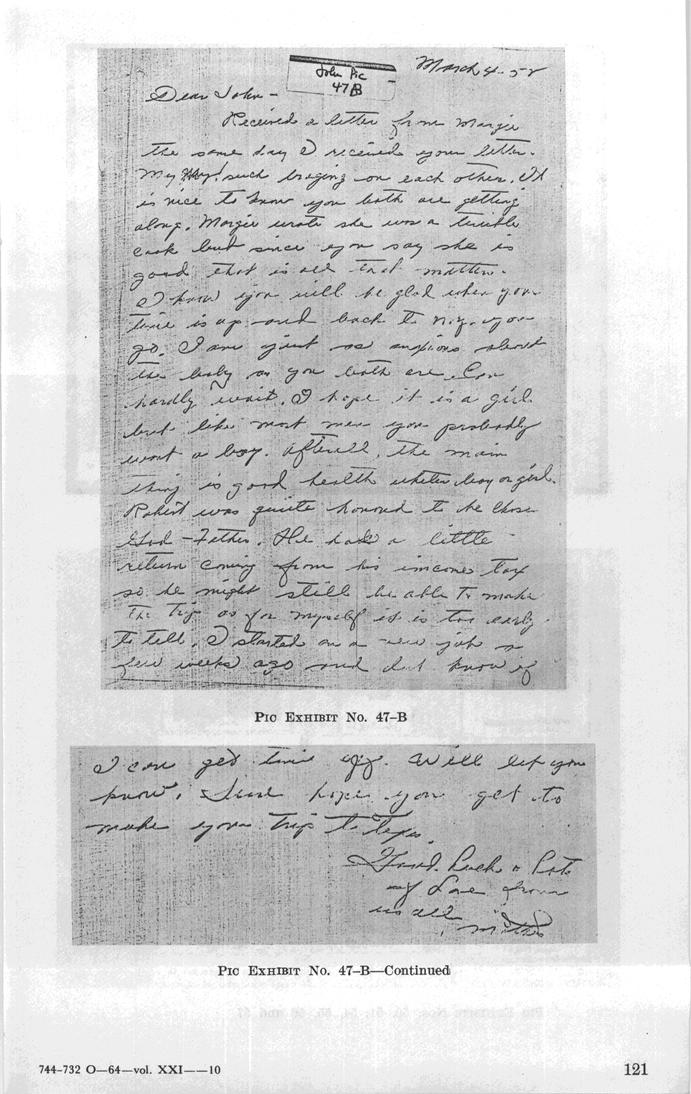 John Pic
47B
March 4-52
Dear John -
Received a letter from Margie
the same day I received your letter.
My My! such braging on each other. It
is nice to know you both are getting
along. Margie wrote she was a terrible
cook but since you say she is
good that is all that matters.
I know you will be glad when your
time is up and back to N.Y. you
go. I am just as anxious about
the baby as you both are. Can
hardly wait. I hope it is a girl
but like most men you probably
want a boy. Afterall, the main
thing is good health whether boy or girl.
Robert was quite honored to be chose
God-Father. He has a little
return coming from his income tax
so he might still be able to make
the trip as for myself it is too early
to tell. I started on a new job a
few weeks ago and dont know if
PIC EXHIBIT No. 47-B
I can get time off. Will let you
know. Sure hope you get to
make your trip to Texas.
Good Luck & Lots
of Love from
us all.
Mother
PIC EXHIBIT No. 47-B—Continued
744-732 O—64—vol. XXI——10
121